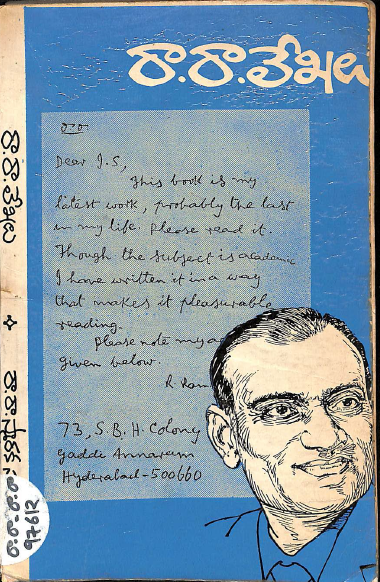 రా.రా.లేఖలు
రా రా
Dear J.S,
This book is my
latest work, probably the last
in my life. Please read it.
Though the subject is academic
I have written it in a way
that makes it pleasurable
reading.
Please note my a
given below.
R. Ram
73, S.B.H. Colony
Gaddi Annaram
Hyderabad-500660
రా.రా.లేఖలు
97612